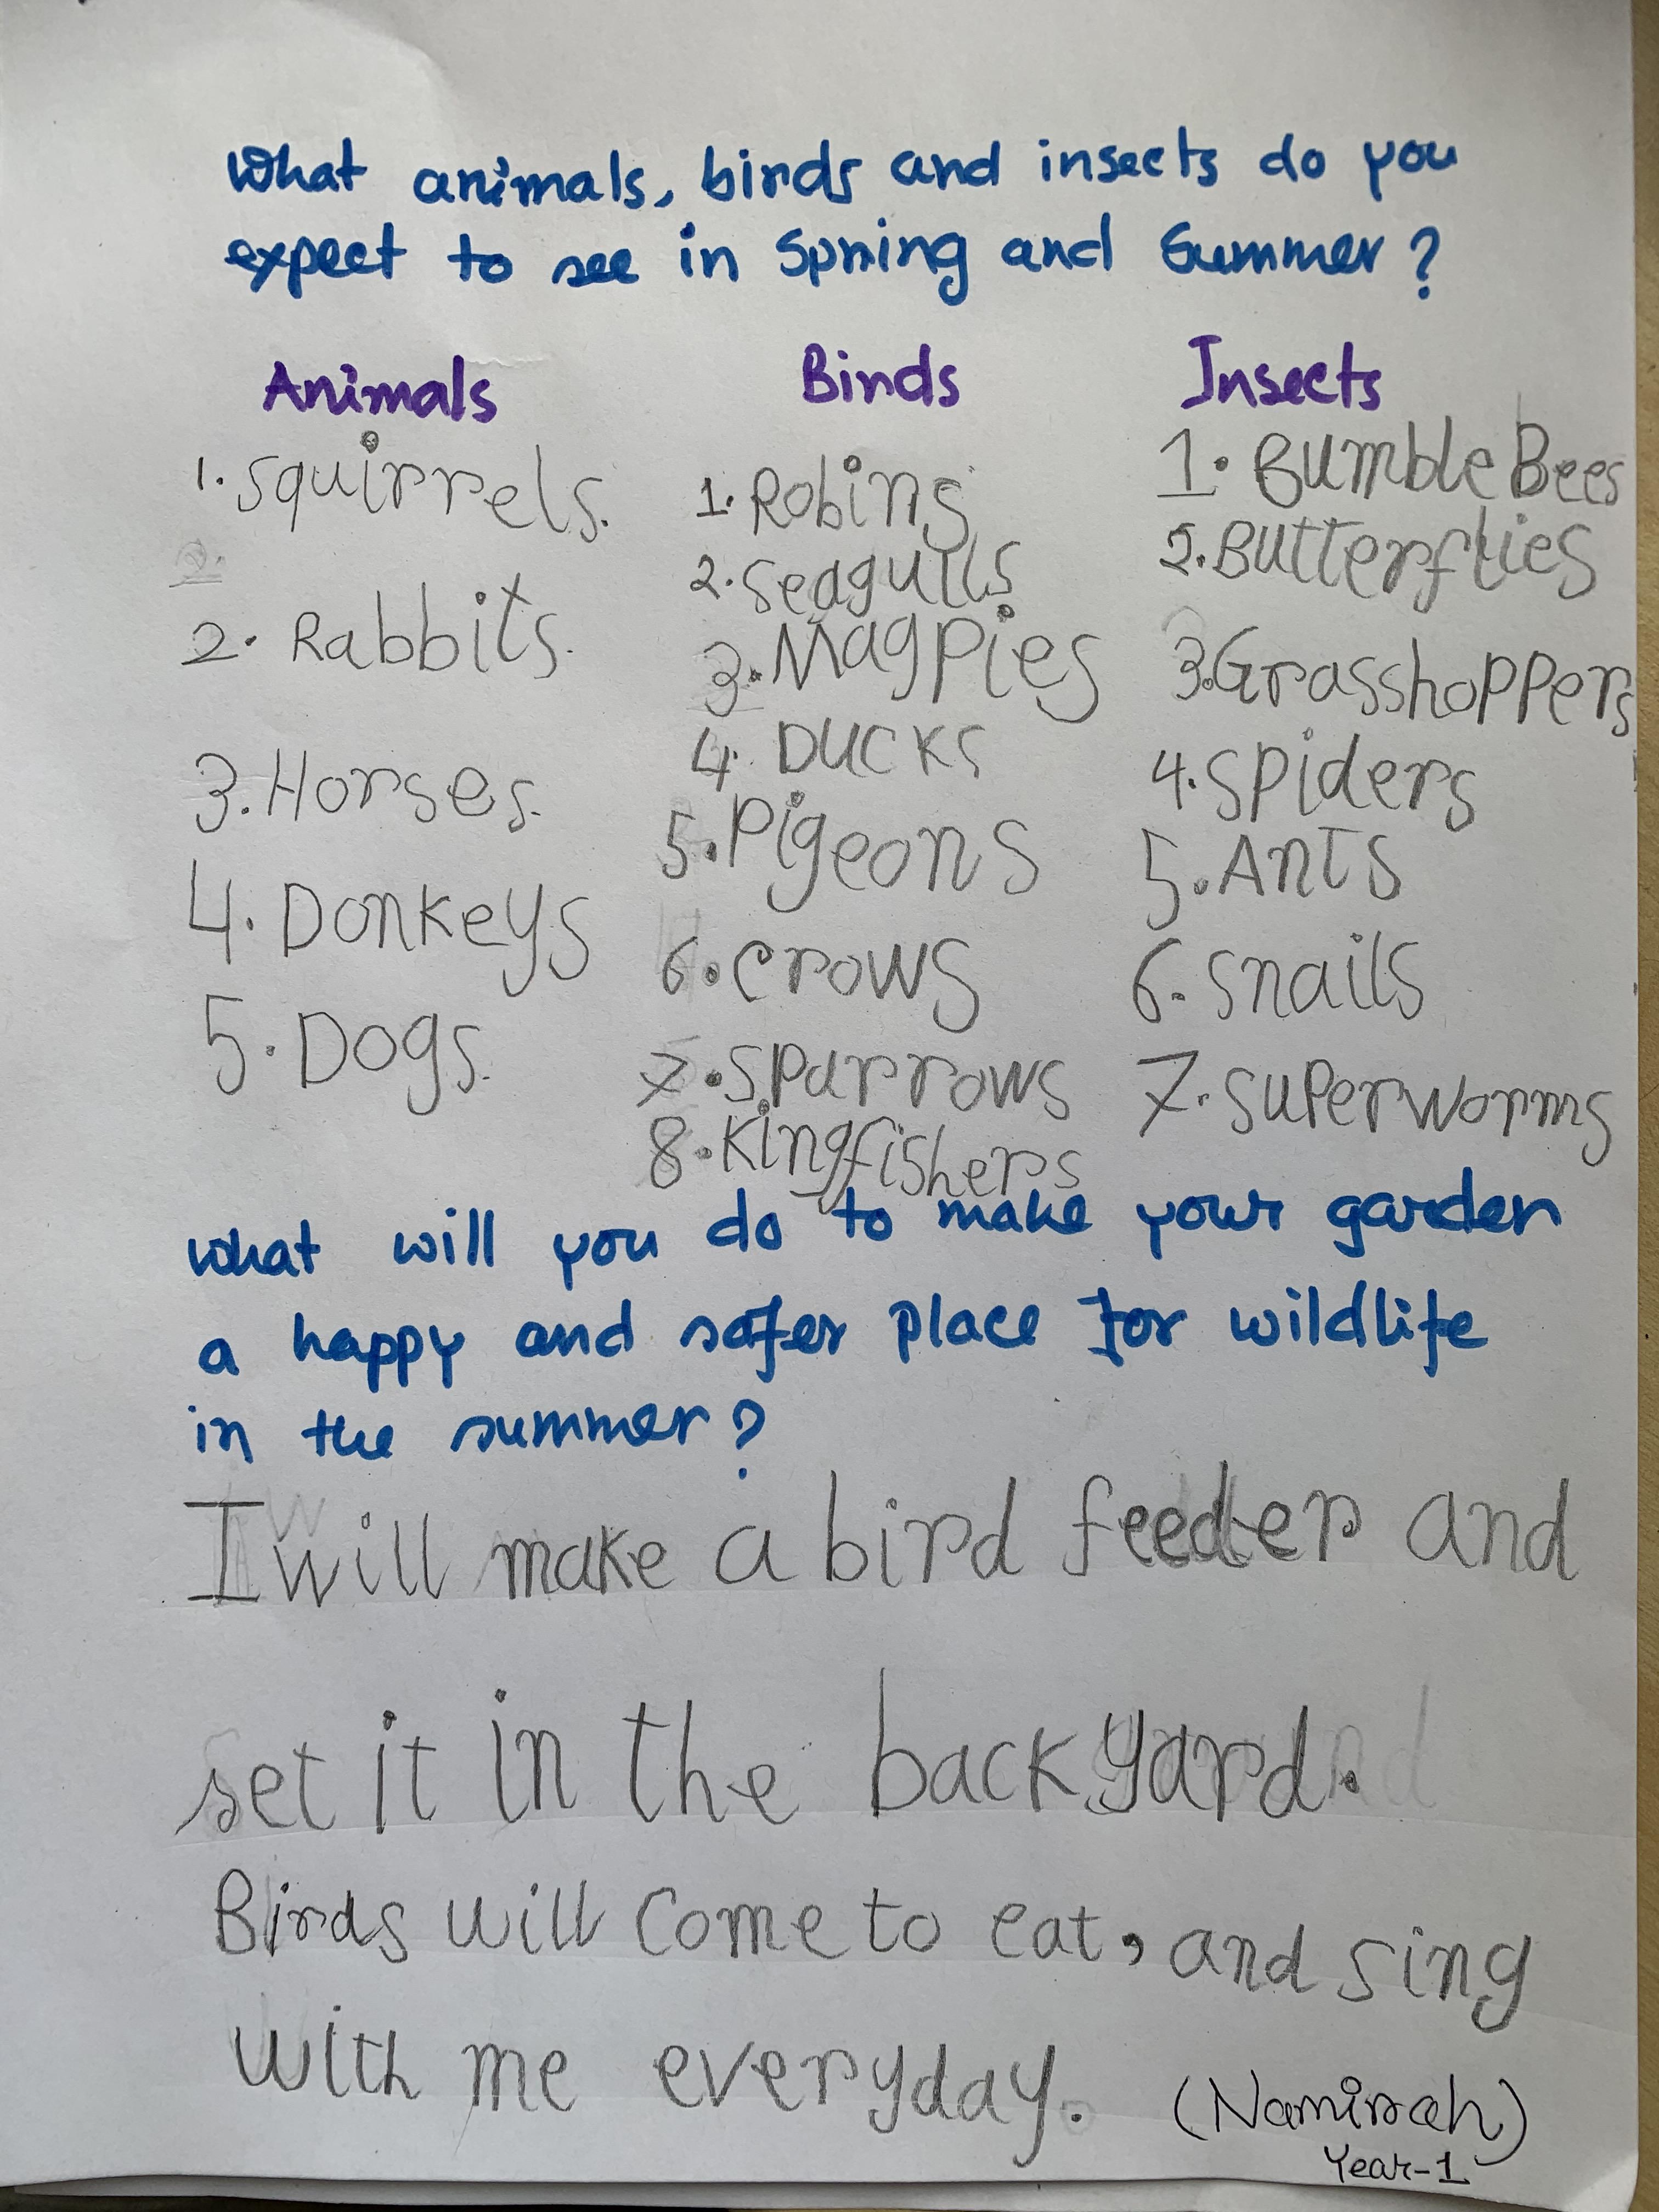 What animals, birds and insects do you
expect to see in Spring and Summer?
Animals
1. Squirrels.
2. Rabbits.
3. Horses.
4. Donkeys
5. Dogs.
Birds
1. Robins
2. Seagulls
3. Magpies
4. Ducks
5. Pigeons
6. crows
7. Sparrows
8. Kingfishers
Insects
1. Bumble Bees
2. Butterflies
3. Grasshoppers
4. Spiders
5. Ants
6. Snails
7. Superworms
What will you do to make your garden
a happy and safer place for wildlife
in the summer?
I will make a bird feeder and
set it in the backyard.
Birds will come to eat, and sing
with me everyday.
(Namirah)
Year-1